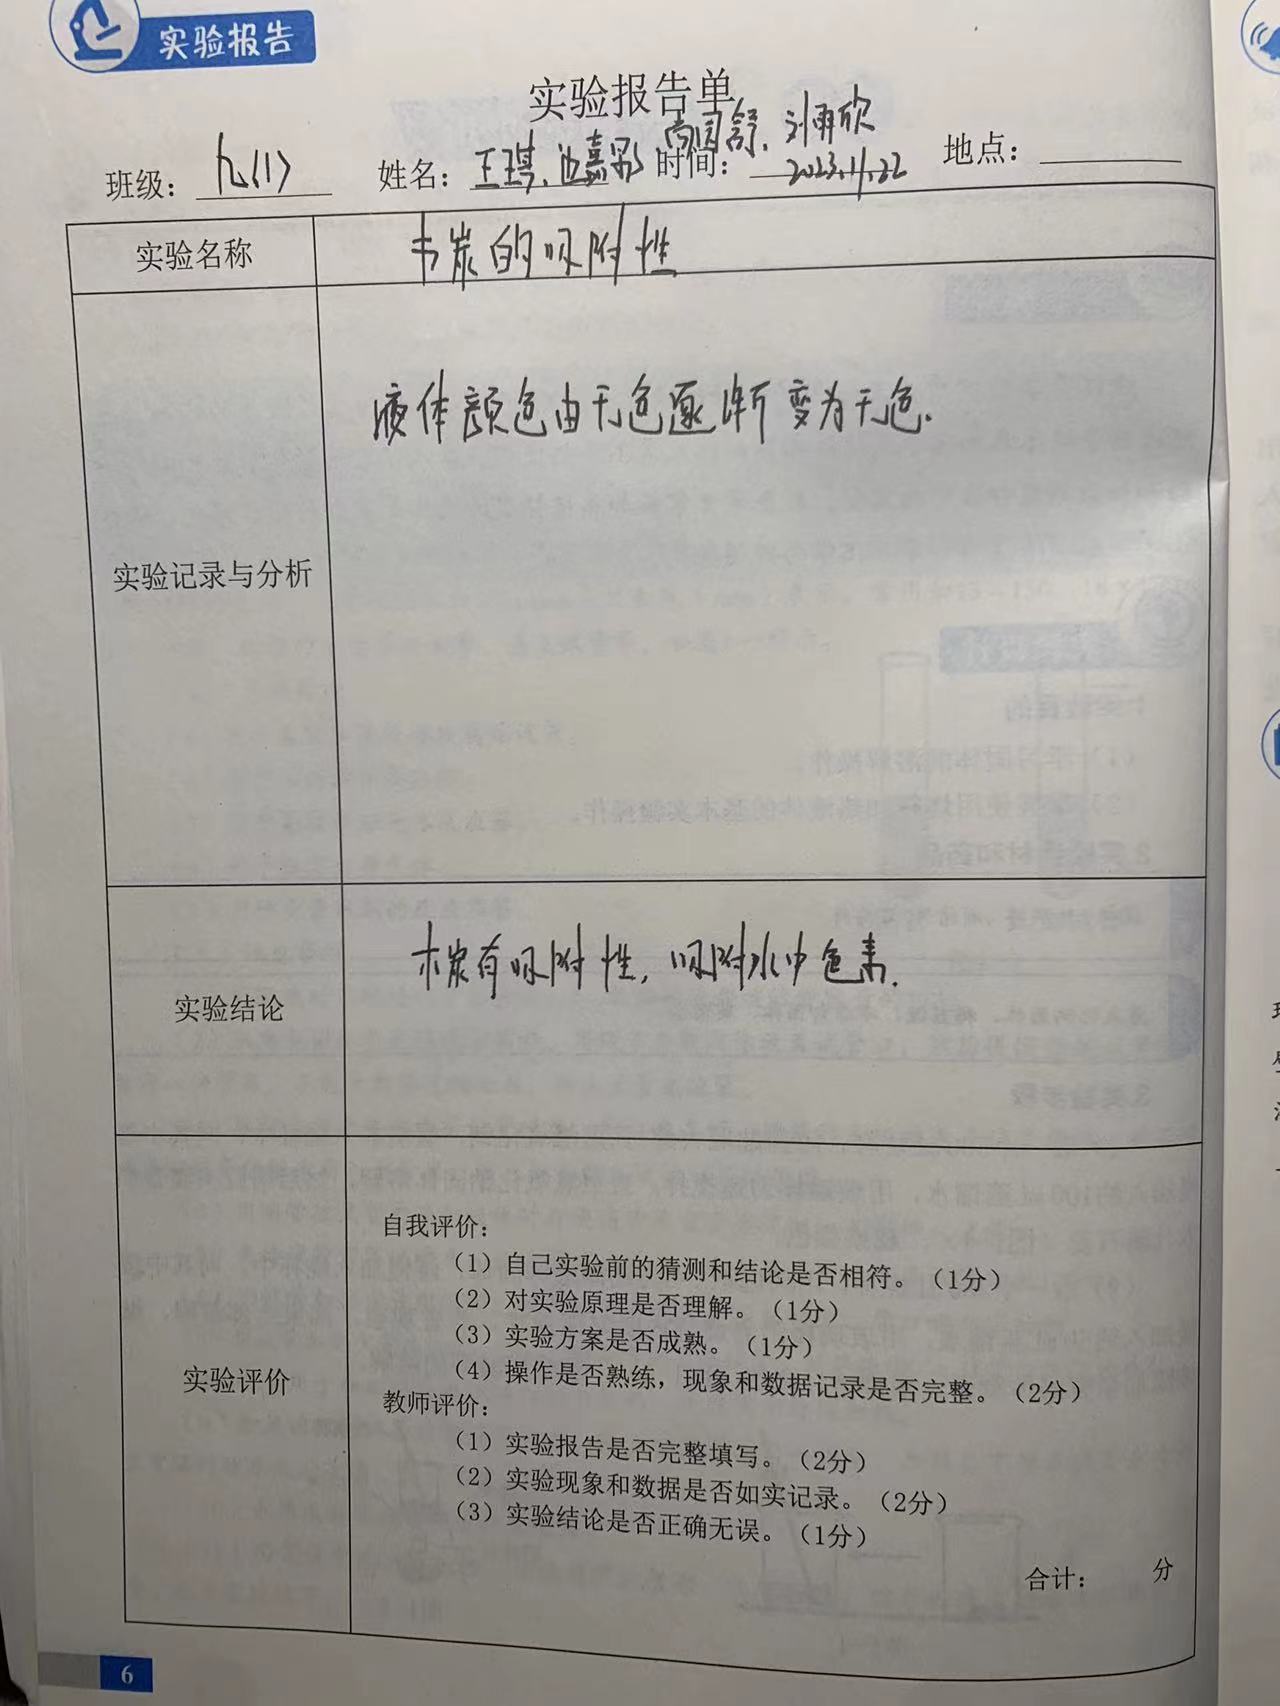 实验报告
实验报告单
班级：九(1) 姓名：王琪、池嘉 尚园舒、刘羽欣 时间：2023.11.22 地点：
实验名称 木炭的吸附性
液体颜色由无色逐渐变为无色.
实验记录与分析
木炭有吸附性，吸附水中色素.
实验结论
自我评价：
（1）自己实验前的猜测和结论是否相符。（1分）
（2）对实验原理是否理解。（1分）
（3）实验方案是否成熟。（1分）
（4）操作是否熟练，现象和数据记录是否完整。（2分）
实验评价
教师评价：
（1）实验报告是否完整填写。（2分）
（2）实验现象和数据是否如实记录。（2分）
（3）实验结论是否正确无误。（1分）
合计： 分
6